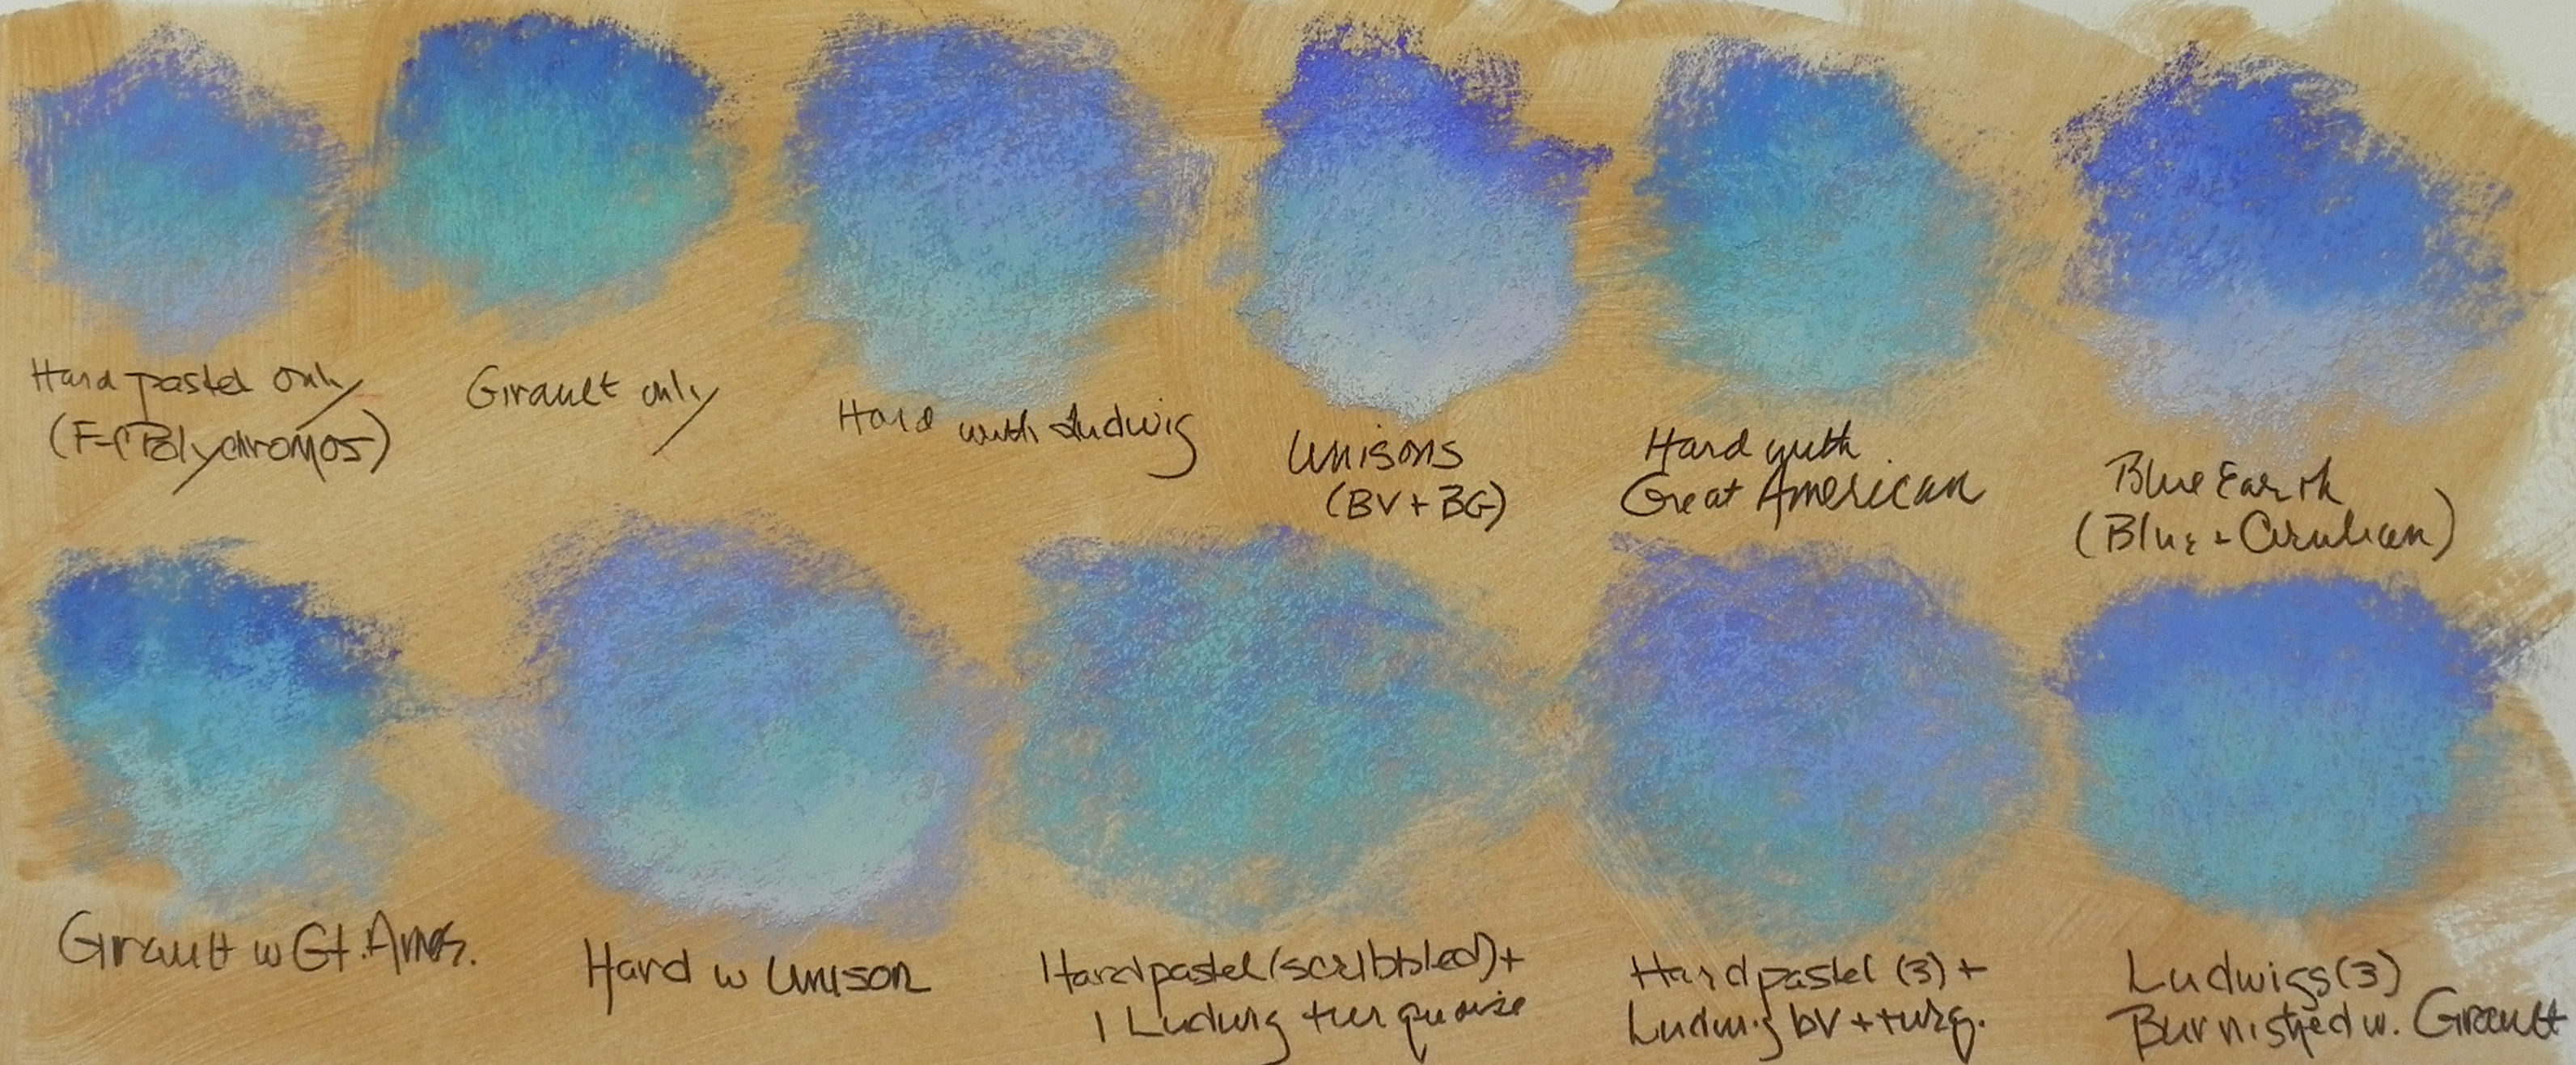 Hard pastel only
(F-C Polychromos)
Girault only
Hard with Ludwig
Unisons
(BV + BG)
Hard with
Great American
Blue Earth
(Blue + Cerulean)
Girault w Gt. Amer.
Hard w Unison
Hard pastel (scribbled) +
1 Ludwig turquoise
Hard pastel (3) +
Ludwig bV + turq.
Ludwigs (3)
Burnished w. Girault